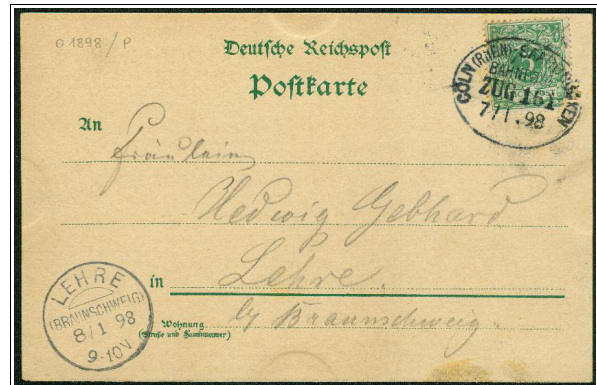 O 1898 / P
Deutsche Reichspost
Postkarte
CÖLN (RHEIN)-SAARBRÜCKEN
BAHNPOST
ZUG 161
7/1.98
An
Fräulein
Hedwig Gebhard
in Lehre.
by Braunschweig.
Wohnung
(Straße und Hausnummer)
LEHRE
(BRAUNSCHWEIG)
8/1 98
9-10N